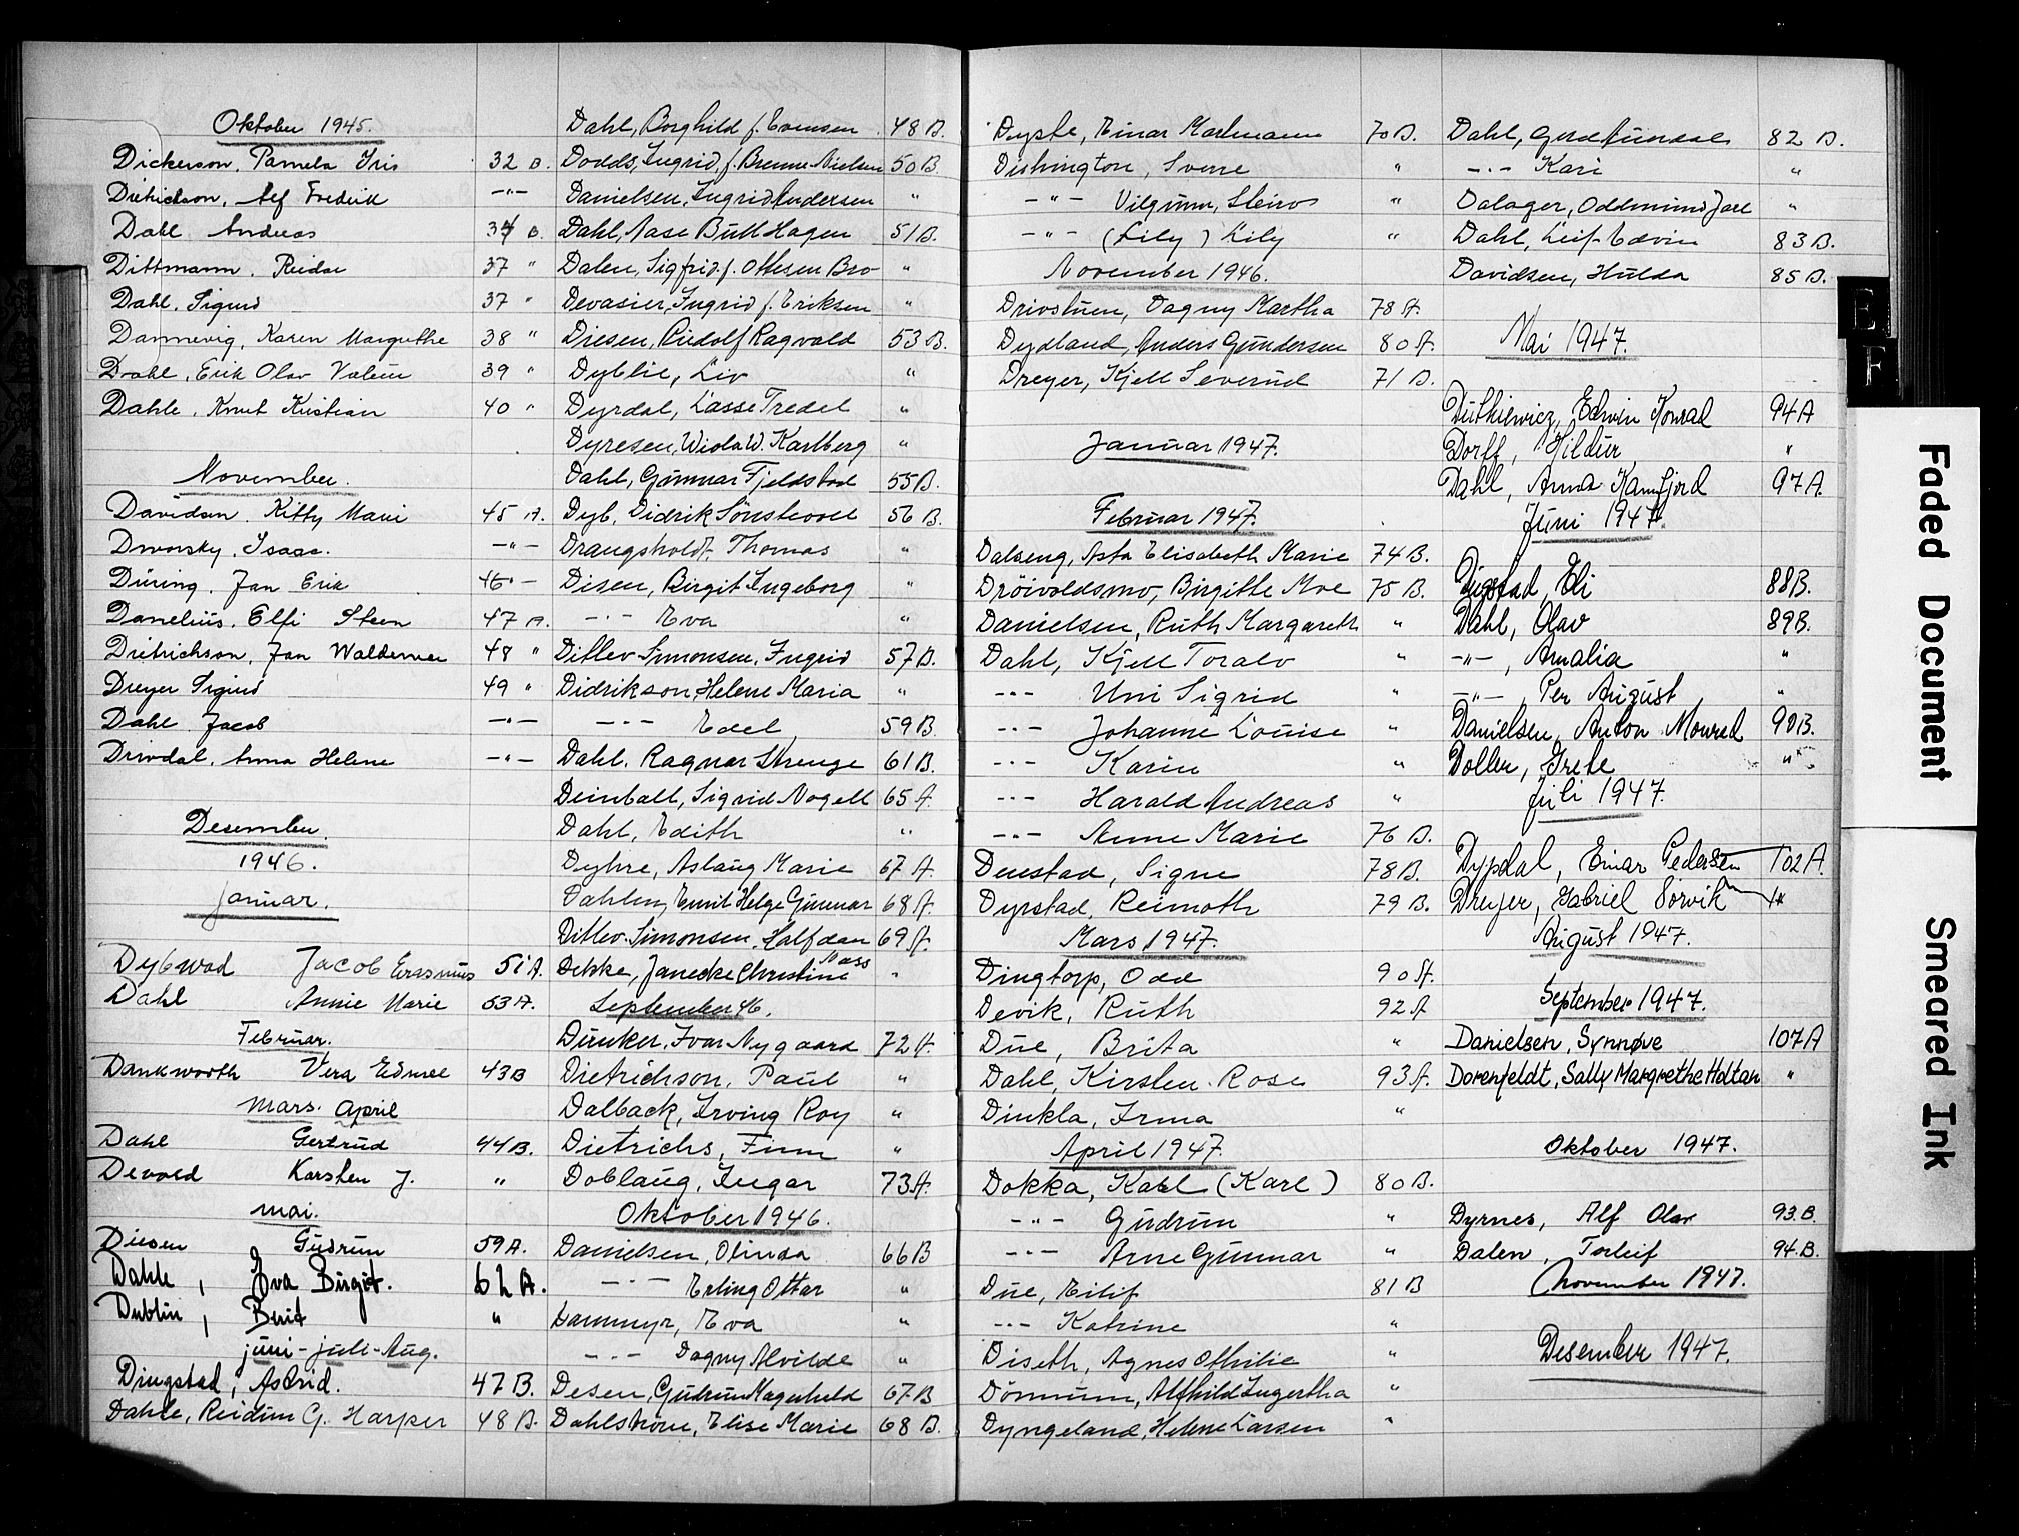 Oktober 1945.
Dickerson, Pamela Iris 32 B.
Dietrichson, Alf Fredrik -"-
Dahl Andreas 34 B.
Dittmann, Reidar 37 "
Dahl, Sigurd 37 "
Dannevig, Karen Margrethe 38 "
Drahl, Erik Olav 39 "
Dahle, Knut Kristian 40 "
November.
Davidson, Kitty Marie 45 A.
Dworsky, Isaac. -"-
Düring, Jan Erik 46 -
Danelius, Elfi Steen 47 A.
Dietrichson, Jan Waldemar 48 "
Dreyer Sigurd 49 "
Dahl Jacob -"-
Drivdal, Anna Helene -"-
Desember.
1946.
Januar.
Dybwad Jacob Erasmus 51 A.
Dahl Annie Marie 53 A.
Februar.
Dankworth Vera Edmee 43 B
Mars. April
Dahl Gertrud 44 B.
Devold Karsten J. "
Mai.
Diesen Gudrun 59 A.
Dahle, Eva Birgit. 62 A.
Dublin, Berit "
juni-juli-Aug.
Dingstad, Astrid. 47 B.
Dahle, Reidun G. Harper 48 B.
Dahl, Borghild f. Evensen 48 B.
Dodds, Ingrid f. Brenne-Nielsen 50 B.
Danielsen, Ingrid Andersen "
Dahl, Aase Bull Hagen 51 B.
Dalen, Sigfrid f. Ottesen Bro "
Devasier, Ingrid f. Eriksen "
Diesen, Rudolf Ragvald 53 B.
Dyblie, Liv "
Dyrdal, Lasse Fredel "
Dyresen, Wiola W. Karlberg "
Dahl, Gunnar Fjeldstad 55 B.
Dyb, Didrik Sønstevold 56 B.
Drangsholdt, Thomas "
Disen, Birgit Ingeborg "
-"- Eva "
Ditlev Simonsen, Ingrid 57 B.
Didrikson, Helene Maria "
-"- Edel 59 B.
Dahl, Ragnar Strenge 61 B.
Deinboll, Sigrid Nagell 65 A.
Dahl, Edith "
Dyhre, Aslaug Marie 67 A.
Dahlen, Emil Helge Gunnar 68 A.
Ditlev-Simonsen, Halfdan 69 A.
Dekke, Janecke Christine Mass "
September 46.
Dunker, Ivar Nygaard 72 A.
Dietrichson, Paul "
Dalback, Irving Roy "
Dietrichs, Finn "
Doblaug, Ingar 73 A.
Oktober 1946.
Danielsen, Olinda 66 B
-"- Erling Ottar "
Dammyr, Eva "
-"- Dagny Alvilde "
Desen, Gudrun Magnhild 67 B
Dahlstrøm, Elise Marie 68 B.
Dyste, Einar Martmann 70 B.
Dishington, Sverre "
-"- Vilgunn, Steiros "
-"- (Lily) Lily "
November 1946.
Drivstuen, Dagny Martha 78 A.
Dydland, Anders Gundersen 80 A.
Dreyer, Kjell Severud 71 B.
Januar 1947.
Februar 1947.
Dalseng, Asta Elisabeth Marie 74 B.
Drøivoldsmo, Birgitte Moe 75 B.
Danielsen, Ruth Margareth "
Dahl, Kjell Toralv "
-"- Uni Sigrid "
-"- Johanne Louise "
-"- Karin "
-"- Harald Andreas "
-"- Anne Marie 76 B.
Denstad, Signe 78 B.
Dyrstad, Reimoth 79 B.
Mars 1947.
Dingtorp, Odd 90 A.
Devik, Ruth 92 A
Due, Brita "
Dahl, Kirsten Rose 93 A.
Dinkla, Irma "
April 1947.
Dokka, Kabl (Karl) 80 B.
-"- Gudrun "
-"- Arne Gunnar "
Due, Eilif 81 B
-"- Katrine "
Diseth, Agnes Othilie "
Dönnum, Alfhild Ingertha "
Dyngeland, Helene Larsen "
Dahl, Gerd 82 B.
-"- Kari "
Dalager, Oddmund Jarl "
Dahl, Leif-Edvin 83 B.
Davidsen, Hulda 85 B.
Mai 1947.
Dutkiewicz, Edwin Konrad 94 A
Dorff, Hildur "
Dahl, Anna Kamfjord 97 A.
Juni 1947.
Digstad, Eli 88 B.
Dahl, Olav 89 B.
-"-, Amalia "
-"-, Per August "
Danielsen, Anton Monrad 90 B.
Doller, Grete "
Juli 1947.
Dypdal, Einar Pedersen 102 A.
Dreyer, Gabriel Sorvik "
August 1947.
September 1947.
Danielsen, Synnøve 107 A
Dorenfeldt, Sally Margrethe Holtan "
Oktober 1947.
Dyrnes, Alf Olav 93.B.
Dalen, Torleif 94.B.
November 1947.
Desember 1947.
E
F
Faded Document
Smeared Ink